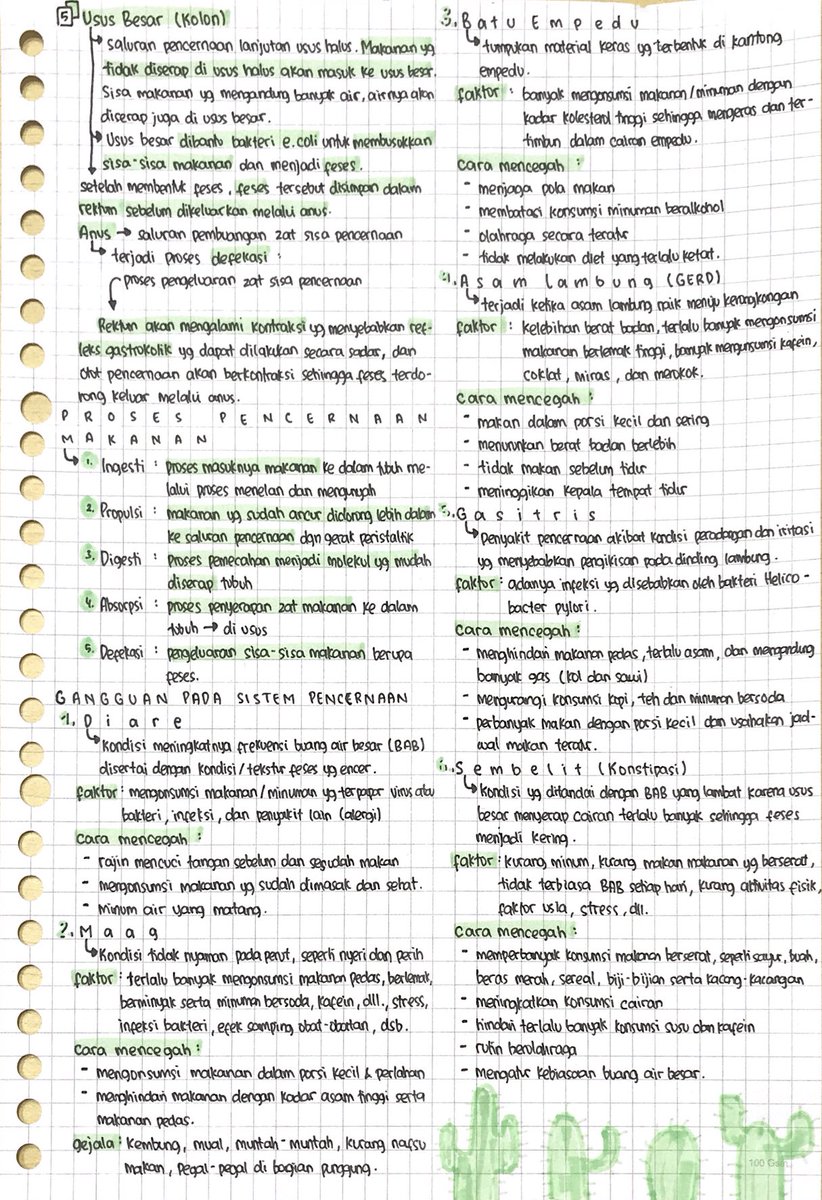 5 Usus Besar (Kolon)
saluran pencernaan lanjutan usus halus. Makanan yg
tidak diserap di usus halus akan masuk ke usus besar.
Sisa makanan yg mengandung banyak air, airnya akan
diserap juga di usus besar.
Usus besar dibantu bakteri e.coli untuk membusukkan
sisa-sisa makanan dan menjadi feses.
setelah membentuk feses, feses tersebut disimpan dalam
rektum sebelum dikeluarkan melalui anus.
Anus → saluran pembuangan zat sisa pencernaan
terjadi proses defekasi :
proses pengeluaran zat sisa pencernaan
Rektum akan mengalami kontraksi yg menyebabkan ref-
leks gastrokolik yg dapat dilakukan secara sadar, dan
otot pencernaan akan berkontraksi sehingga feses terdo-
rong keluar melalui anus.
PROSES PENCERNAAN
MAKANAN
1. Ingesti : proses masuknya makanan ke dalam tubuh me-
lalui proses menelan dan mengunyah
2. Propulsi : makanan yg sudah ancur didorong lebih dalam
ke saluran pencernaan dgn gerak peristaltik
3. Digesti : Proses pemecahan menjadi molekul yg mudah
diserap tubuh
4. Absorpsi : proses penyerapan zat makanan ke dalam
tubuh → di usus
5. Defekasi : pengeluaran sisa-sisa makanan berupa
feses.
GANGGUAN PADA SISTEM PENCERNAAN
1. Diare
Kondisi meningkatnya frekuensi buang air besar (BAB)
disertai dengan kondisi/tekstur feses yg encer.
faktor : mengonsumsi makanan/minuman yg terpapar virus atau
bakteri, infeksi, dan penyakit lain (alergi)
cara mencegah :
- rajin mencuci tangan sebelum dan sesudah makan
- mengonsumsi makanan yg sudah dimasak dan sehat.
- minum air yang matang.
2. Maag
Kondisi tidak nyaman pada perut, seperti nyeri dan perih
faktor : terlalu banyak mengonsumsi makanan pedas, berlemak,
berminyak serta minuman bersoda, kafein, dll., stress,
infeksi bakteri, efek samping obat-obatan, dsb.
cara mencegah :
- mengonsumsi makanan dalam porsi kecil & perlahan
- menghindari makanan dengan kadar asam tinggi serta
makanan pedas.
gejala : Kembung, mual, muntah-muntah, kurang nafsu
makan, pegal-pegal di bagian punggung.
3. Batu Empedu
tumpukan material keras yg terbentuk di kantong
empedu.
faktor : banyak mengonsumsi makanan/minuman dengan
kadar kolesterol tinggi sehingga mengeras dan ter-
timbun dalam cairan empedu.
cara mencegah :
- menjaga pola makan
- membatasi konsumsi minuman beralkohol
- olahraga secara teratur
- tidak melakukan diet yang terlalu ketat.
4. Asam lambung (GERD)
terjadi ketika asam lambung naik menuju kerongkongan
faktor : Kelebihan berat badan, terlalu banyak mengonsumsi
makanan berlemak tinggi, banyak mengonsumsi kafein,
coklat, miras, dan merokok.
cara mencegah :
- makan dalam porsi kecil dan sering
- menurunkan berat badan berlebih
- tidak makan sebelum tidur
- meninggikan kepala tempat tidur
5. Gasitris
Penyakit pencernaan akibat kondisi peradangan dan iritasi
yg menyebabkan pengikisan pada dinding lambung.
faktor : adanya infeksi yg disebabkan oleh bakteri Helico-
bacter pylori.
cara mencegah :
- menghindari makanan pedas, terlalu asam, dan mengandung
banyak gas (kol dan sawi)
- mengurangi konsumsi kopi, teh dan minuman bersoda
- perbanyak makan dengan porsi kecil dan usahakan jad-
wal makan teratur.
6. Sembelit (Konstipasi)
Kondisi yg ditandai dengan BAB yang lambat karena usus
besar menyerap cairan terlalu banyak sehingga feses
menjadi kering.
faktor : kurang minum, kurang makan makanan yg berserat,
tidak terbiasa BAB setiap hari, kurang aktivitas fisik,
faktor usia, stress, dll.
cara mencegah :
- memperbanyak konsumsi makanan berserat, seperti sayur, buah,
beras merah, sereal, biji-bijian serta kacang-kacangan
- meningkatkan konsumsi cairan
- hindari terlalu banyak konsumsi susu dan kafein
- rutin berolahraga
- mengatur kebiasaan buang air besar.
100 Gsm